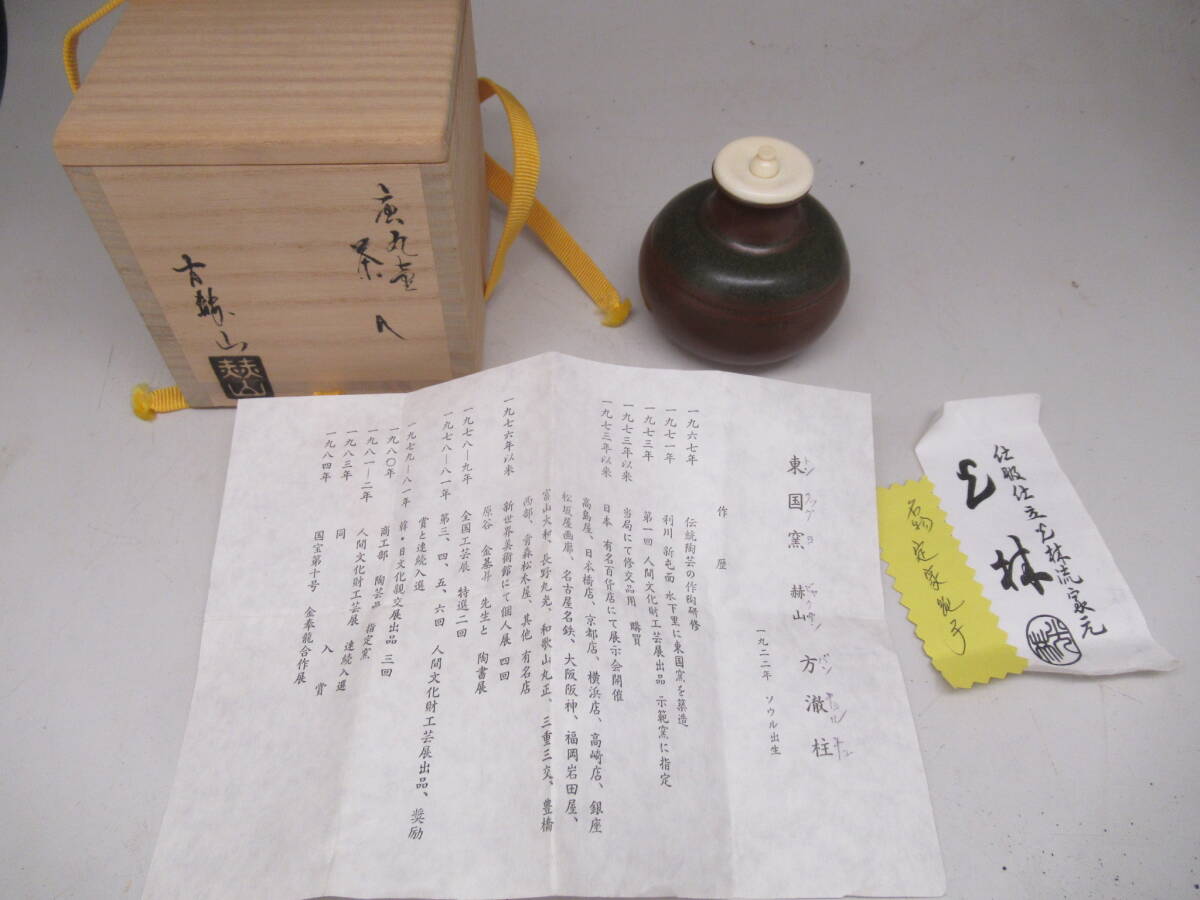 唐丸壷
茶入
赫山
東国窯　赫山　方澈柱
一九二二年　ソウル出生
作歴
一九六七年　伝統陶芸の作陶研修
一九七一年　利川　新屯面　水下里に東国窯を築造
一九七三年　第一回　人間文化財工芸展出品　示範窯に指定
一九七三年以来　当局にて修交品用　購買
一九七三年以来　日本　有名百貨店にて展示会開催
高島屋、日本橋店、京都店、横浜店、高崎店、銀座
松坂屋画廊、名古屋名鉄、大阪阪神、福岡岩田屋、
富山大和、長野丸光、和歌山丸正、三重三交、豊橋
西部、青森松木屋、其他　有名店
一九七六年以来　新世界美術館にて個人展　四回
原谷　金基昇　先生と　陶書展
一九七八―九年　全国工芸展　特選二回
一九七八―八一年　第三、四、五、六回　人間文化財工芸展出品、奨励
賞と連続入選
一九七九―八一年　韓・日文化親交展出品　三回
一九八〇年　商工部　陶芸品　指定窯
一九八一―二年　人間文化財工芸展　連続入選
一九八三年　同　入賞
一九八四年　国宝第十号　金奉龍合作展
仕服仕立　友林流家元
友林
名物　定家緞子